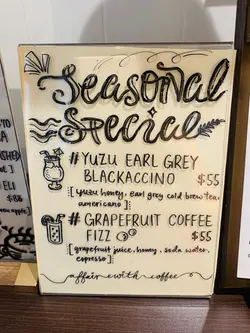 Seasonal
Special
#YUZU EARL GREY
BLACKACCINO $55
[yuzu honey. earl grey cold brew tea
americano]
#GRAPEFRUIT COFFEE
FIZZ $55
[grapefruit juice. honey. soda water.
espresso]
affair with coffee
ELI
$86